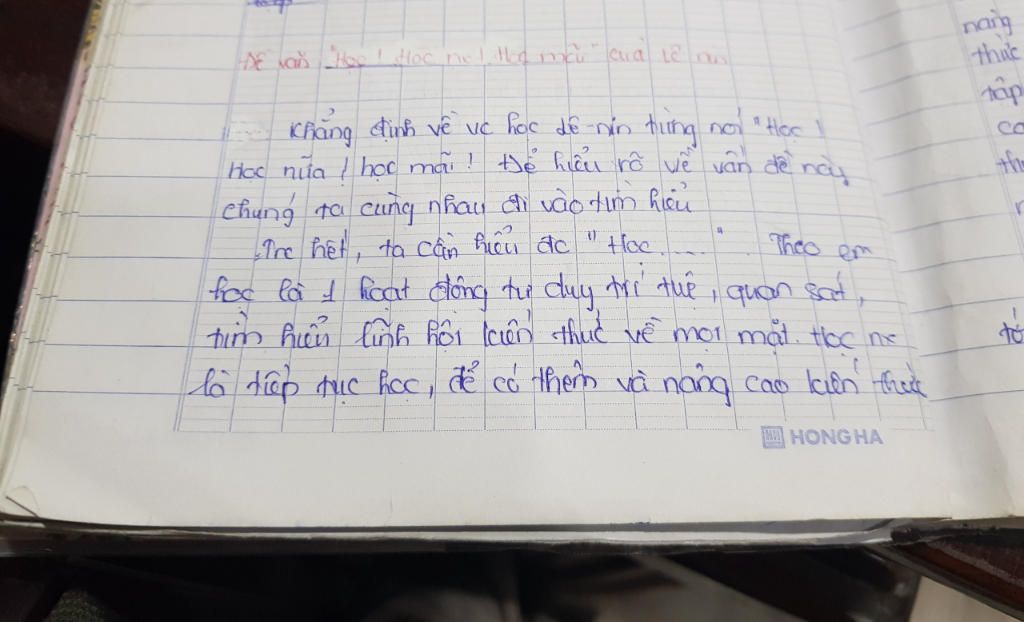 Đề văn "Học! Học nx! Học mãi" của Lê nin
Khẳng định về vc học dê-nin từng nói "Học!
Học nữa! học mãi! Để hiểu rõ về vấn đề này
chúng ta cùng nhau đi vào tìm hiểu
Trc hết, ta cần hiểu đc "Học....". Theo em
học là 1 hoạt động tư duy trí tuệ, quan sát,
tìm hiểu lĩnh hội kiến thức về mọi mặt. Học nx
là tiếp tục học, để có thêm và nâng cao kiến thức
HONG HA
nâng
thức
tập